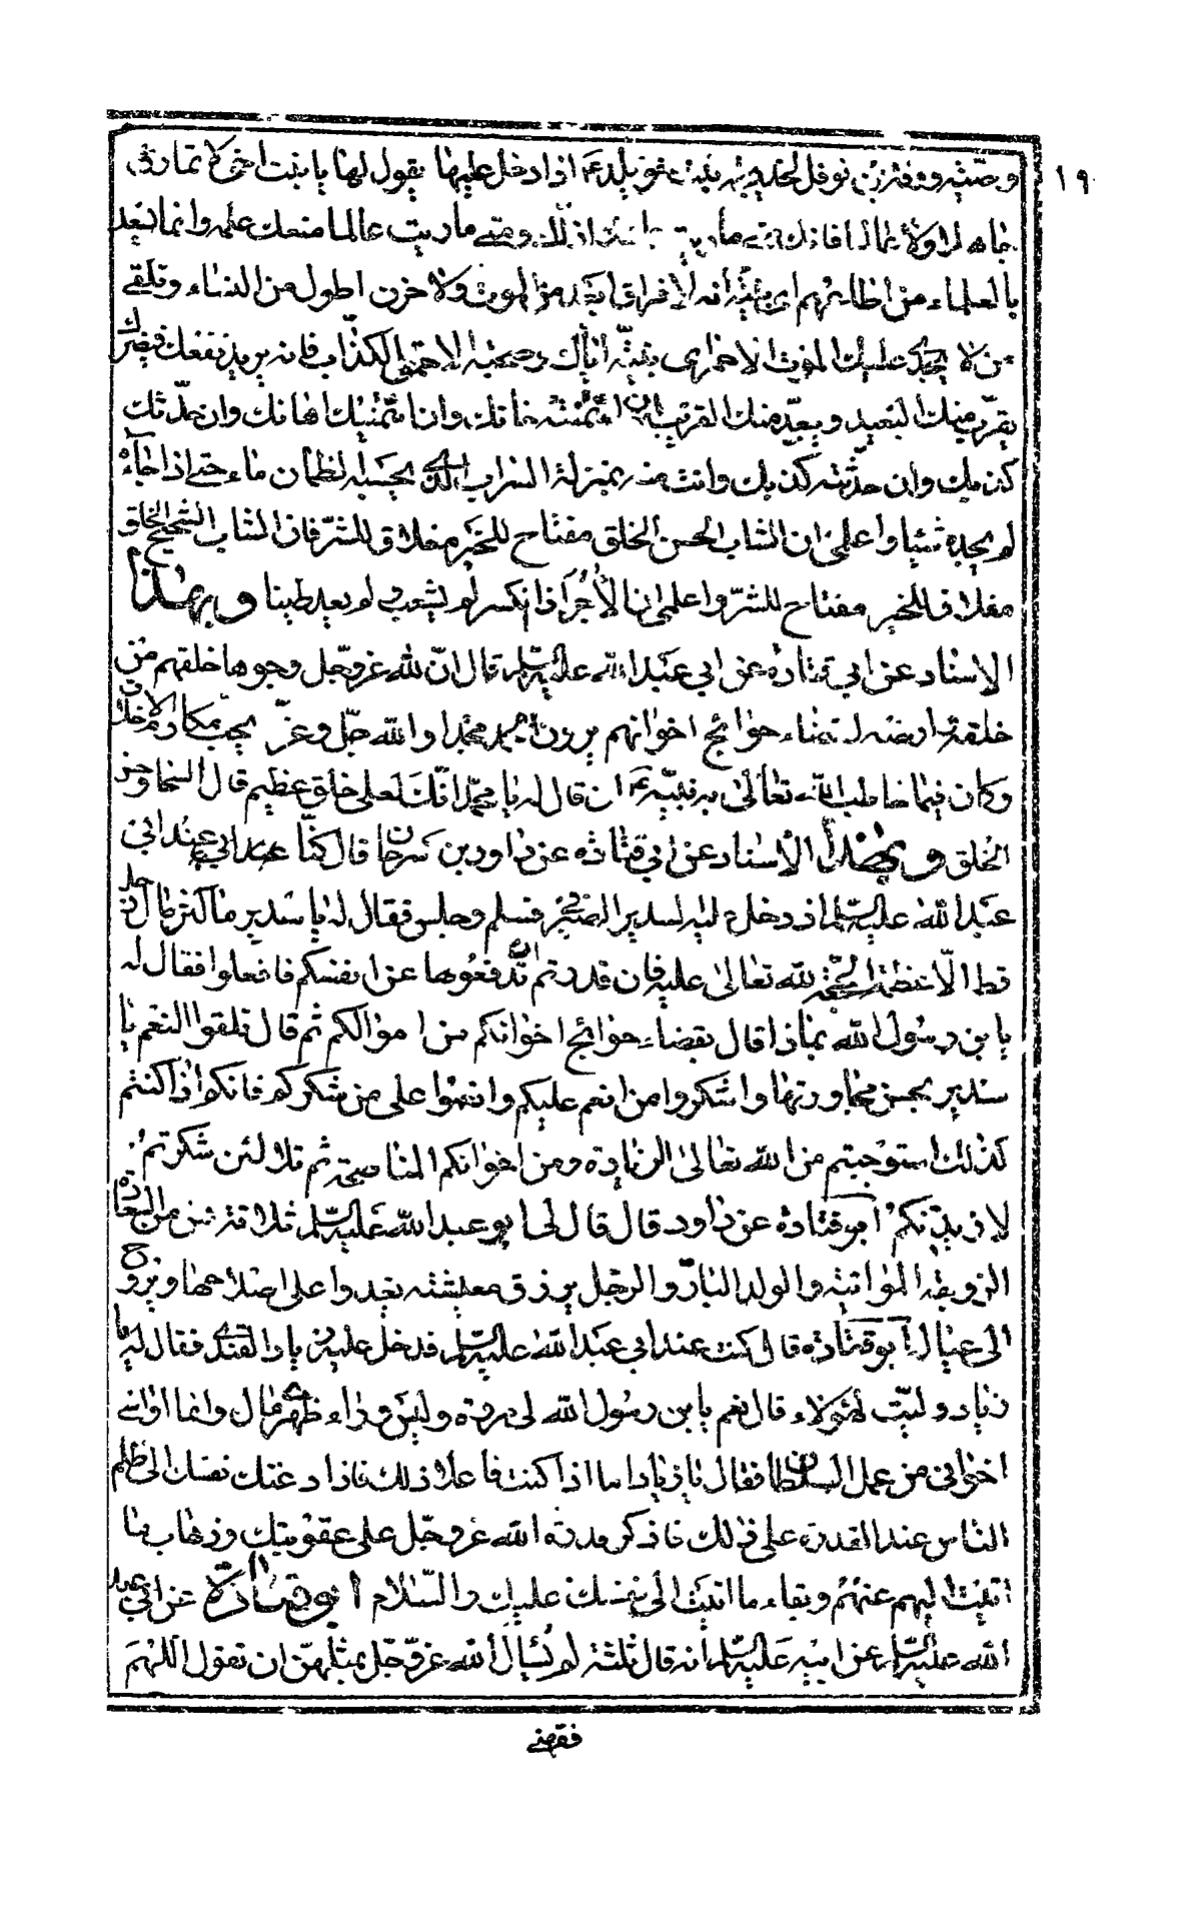 ١٩
وصية ورقة بن نوفل لخديجة بنت خويلد ع اذا دخل عليها يقول لها يا بنت اخى لا تمارى
جاهلا ولا عالما فانك متى ماريت جاهلا اذلك ومتى ماريت عالما منعك علمه وانما يسعد
بالعلماء من اطاعهم اى بنية انه لا فراق ابعد من الموت ولا حزن اطول من النساء وتلقى
من لا يجدى عليك الموت الاحمر اى بنية اياك وصحبة الاحمق الكذاب فانه يريد نفعك فيضرك
يقرب منك البعيد ويبعد منك القريب ان ائتمنته خانك وان ائتمنك اهانك وان حدثك
كذبك وان حدثته كذبك وانت منه بمنزلة السراب الذى يحسبه الظمآن ماء حتى اذا جاءه
لم يجده شيئا واعلمى ان الشاب الحسن الخلق مفتاح للخير مغلاق للشر فان الشاب الشحيح الخلق
مغلاق للخير مفتاح للشر واعلمى ان الآجر اذا انكسر لم يشعب و لم يعد طينا وبهذا
الاسناد عن ابى قتادة عن ابى عبد الله عليه السلم قال ان لله عز وجل وجوها خلقهم من
خلقه وارضه لقضاء حوائج اخوانهم يرون الحمد مجدا والله جل وعز يحب مكارم الاخلاق
وكان فيما خاطب الله تعالى به نبيه ع ان قال له يا محمد انك لعلى خلق عظيم قال السخا وحسن
الخلق وبهذا الاسناد عن ابى قتادة عن داود بن سرحان قال كنا عند ابى
عبد الله عليه السلم اذ دخل عليه سدير الصيرفى فسلم وجلس فقال له يا سدير ما كثر مال رجل
قط الا عظمت الحجة لله تعالى عليه فان قدرتم ان تدفعوها عن انفسكم فافعلوا فقال له
يا بن رسول الله بماذا قال بقضاء حوائج اخوانكم من اموالكم ثم قال تلقوا النعم يا
سدير بحسن مجاورتها واشكروا من انعم عليكم وانعموا على من شكركم فانكم اذا كنتم
كذلك استوجبتم من الله تعالى الزيادة ومن اخوانكم المناصحة ثم تلا لئن شكرتم
لازيدنكم ابو قتادة عن داود قال قال لى ابو عبد الله عليه السلم ثلاثة هن من السعادة
الزوجة المواتية والولد البار والرجل يرزق معيشته يغدوا على اصلاحها ويروح
الى عياله ابو قتادة قال كنت عند ابى عبد الله عليه السلم فدخل عليه زياد القندى فقال له يا
زياد وليت لهؤلاء قال نعم يا بن رسول الله لى مروة وليس وراء ظهرى مال وانما اواسى
اخوانى من عمل السلطان فقال يا زياد اما اذا كنت فاعلا ذلك فاذا دعتك نفسك الى ظلم
الناس عند القدرة على ذلك فاذكر قدرة الله عز وجل على عقوبتك وذهاب ما
اتيت اليهم عنهم وبقاء ما اتيت الى نفسك عليك والسلام ابو قتادة عن ابى عبد
الله عليه السلم عن ابيه عليه السلم انه قال ثلثة لم يسال الله عز وجل بمثلهن ان تقول اللهم
فقهنى